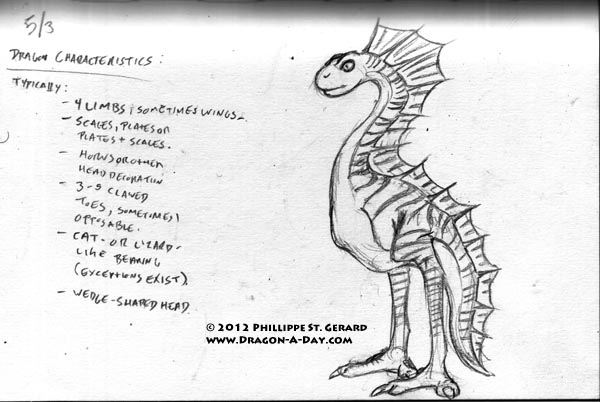 5/3
DRAGON CHARACTERISTICS:
TYPICALLY:
- 4 LIMBS, SOMETIMES WINGS.
- SCALES, PLATES OR
PLATES + SCALES.
- HORNS OR OTHER
HEAD DECORATION
- 3-5 CLAWED
TOES, SOMETIMES
OPPOSABLE.
- CAT- OR LIZARD-
LIKE BEARING
(EXCEPTIONS EXIST).
- WEDGE-SHAPED HEAD
© 2012 PHILLIPPE ST. GERARD
WWW.DRAGON-A-DAY.COM